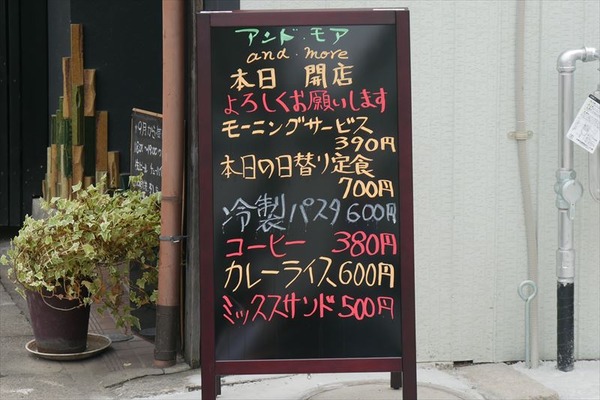 アンド・モア
and more
本日 開店
よろしくお願いします
モーニングサービス
390円
本日の日替り定食
700円
冷製パスタ600円
コーヒー 380円
カレーライス600円
ミックスサンド500円